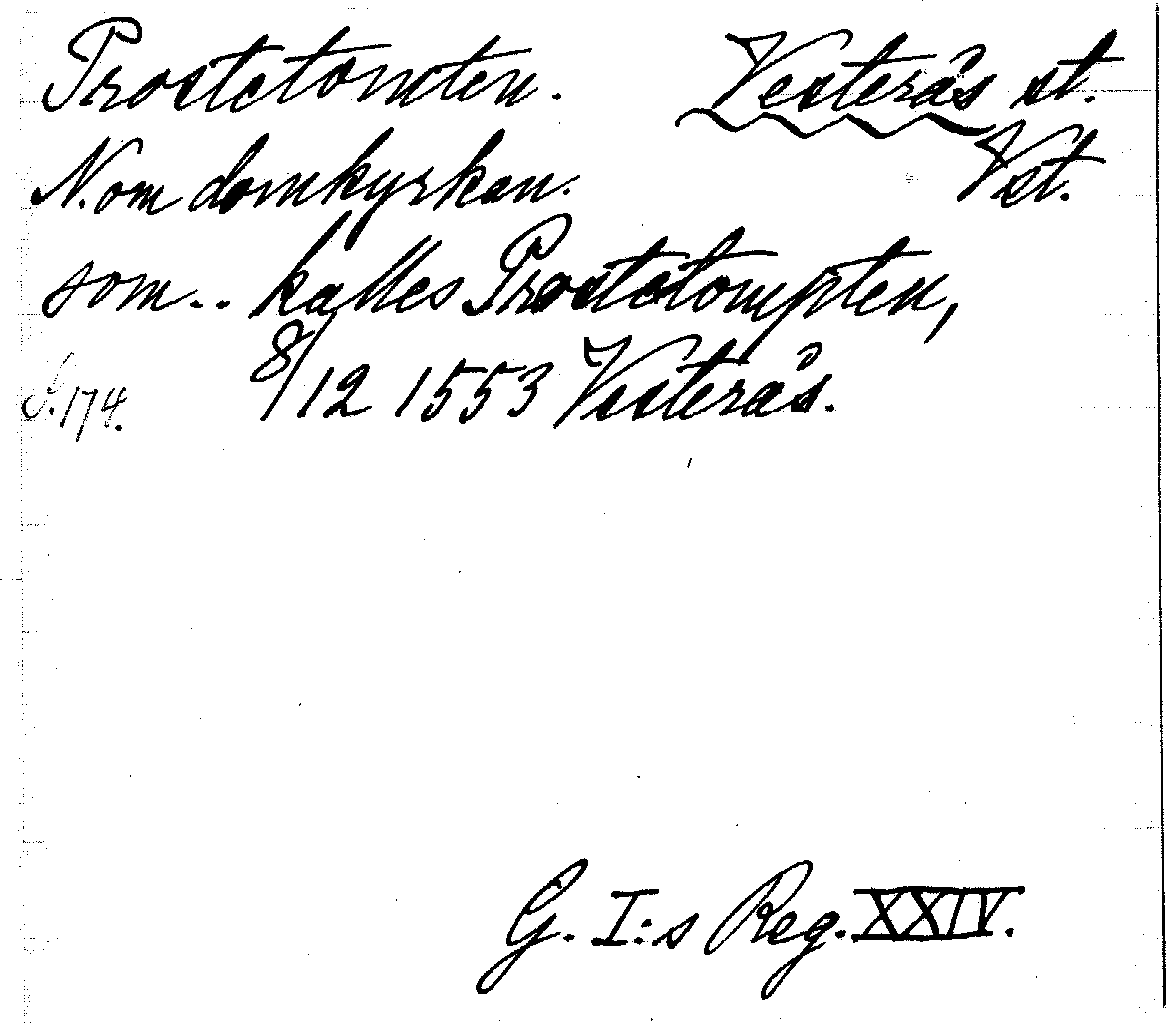 Prostetomten. Vesterås st.
N. om domkyrkan. Vst.
som.. kalles Prostetompten,
S. 174. 8/12 1553 Vesterås.
G. I:s Reg. XXIV.